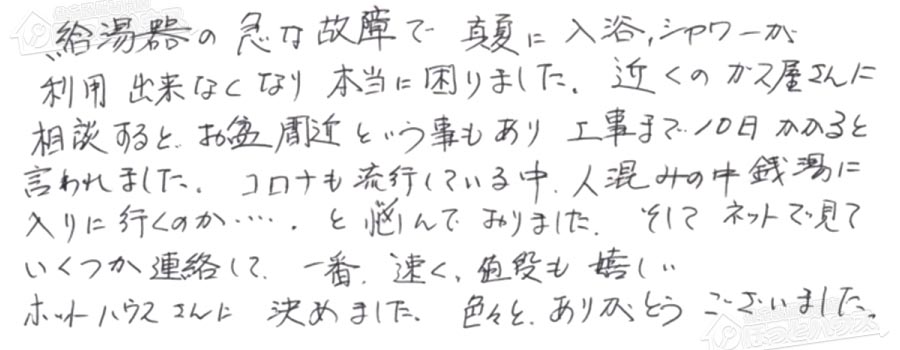 給湯器の急な故障で真夏に入浴,シャワーが
利用出来なくなり本当に困りました。近くのガス屋さんに
相談すると、お盆間近という事もあり工事まで10日かかると
言われました。コロナも流行している中、人混みの中銭湯に
入りに行くのか‥‥。と悩んでおりました。そしてネットで見て
いくつか連絡して、一番、速く、値段も嬉しい
ホットハウスさんに決めました。色々と、ありがとうございました。